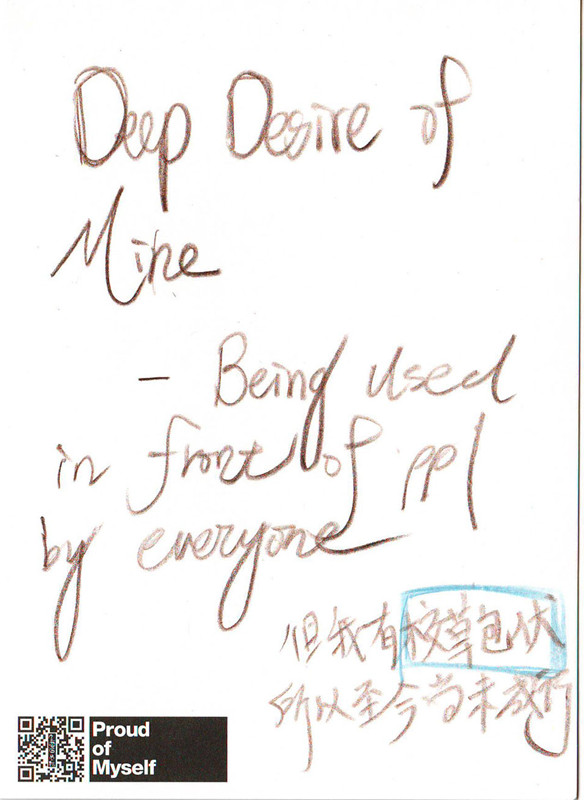 Deep Desire of
Mine
- Being used
in front of ppl
by everyone
但我有校草包伏
所以至今尚未成行
Proud
of
Myself